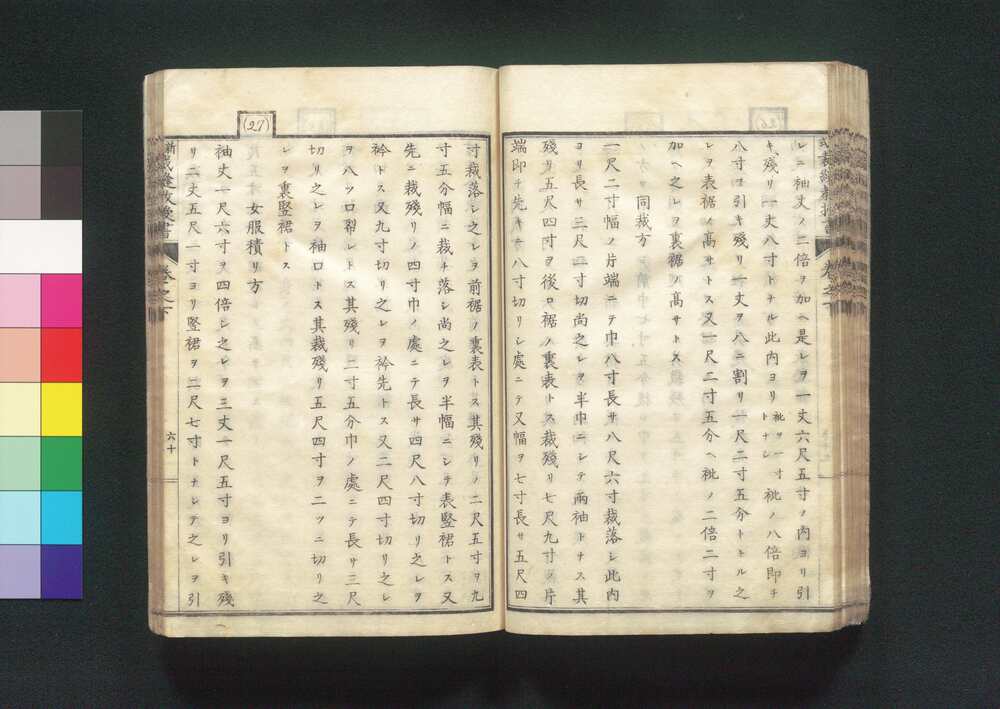 レニ袖丈ノ二倍ヲ加ヘ是レヲ一丈六尺五寸ノ内ヨリ引
キ残リ一丈八寸トナル此内ヨリ袘ヲ一寸トナシ袘ノ八倍即チ
八寸ヲ引キ残リ一丈ヲ八ニ割リ一尺二寸五分トトル之
レヲ表裾ノ高サトス又一尺二寸五分ヘ袘ノ二倍二寸ヲ
加ヘ之レヲ裏裾ノ高サトス
同裁方
一尺二寸幅ノ片端ニテ巾八寸長サ八尺六寸裁落シ此内
ヨリ長サ三尺二寸切尚之レヲ半巾ニシテ兩袖トナス其
残リ五尺四寸ヲ後口裾ノ裏表トス裁残リ七尺九寸ヲ片
端即チ先キノ八寸切リシ處ニテ又幅ヲ七寸長サ五尺四
寸裁落シ之レヲ前裾ノ裏表トス其残リノ二尺五寸ヲ九
寸五分幅ニ裁チ落シ尚之レヲ半幅ニシテ表竪裙トス又
先ニ裁残リノ四寸巾ノ處ニテ長サ四尺八寸切リ之レヲ
衿トス又九寸切リ之レヲ衿先トス又二尺四寸切リ之レ
ヲ八ツ口幂レトス其残リ二寸五分巾ノ處ニテ長サ三尺
切リ之レヲ袖口トス其裁残リ五尺四寸ヲ二ツニ切リ之
レヲ裏竪裙トス
(27)
女服積リ方
袖丈一尺六寸ヲ四倍シ之レヲ三丈一尺五寸ヨリ引キ残
リ二丈五尺一寸ヨリ竪裙ヲ二尺七寸トナシテ之レヲ引
卷之下
六十